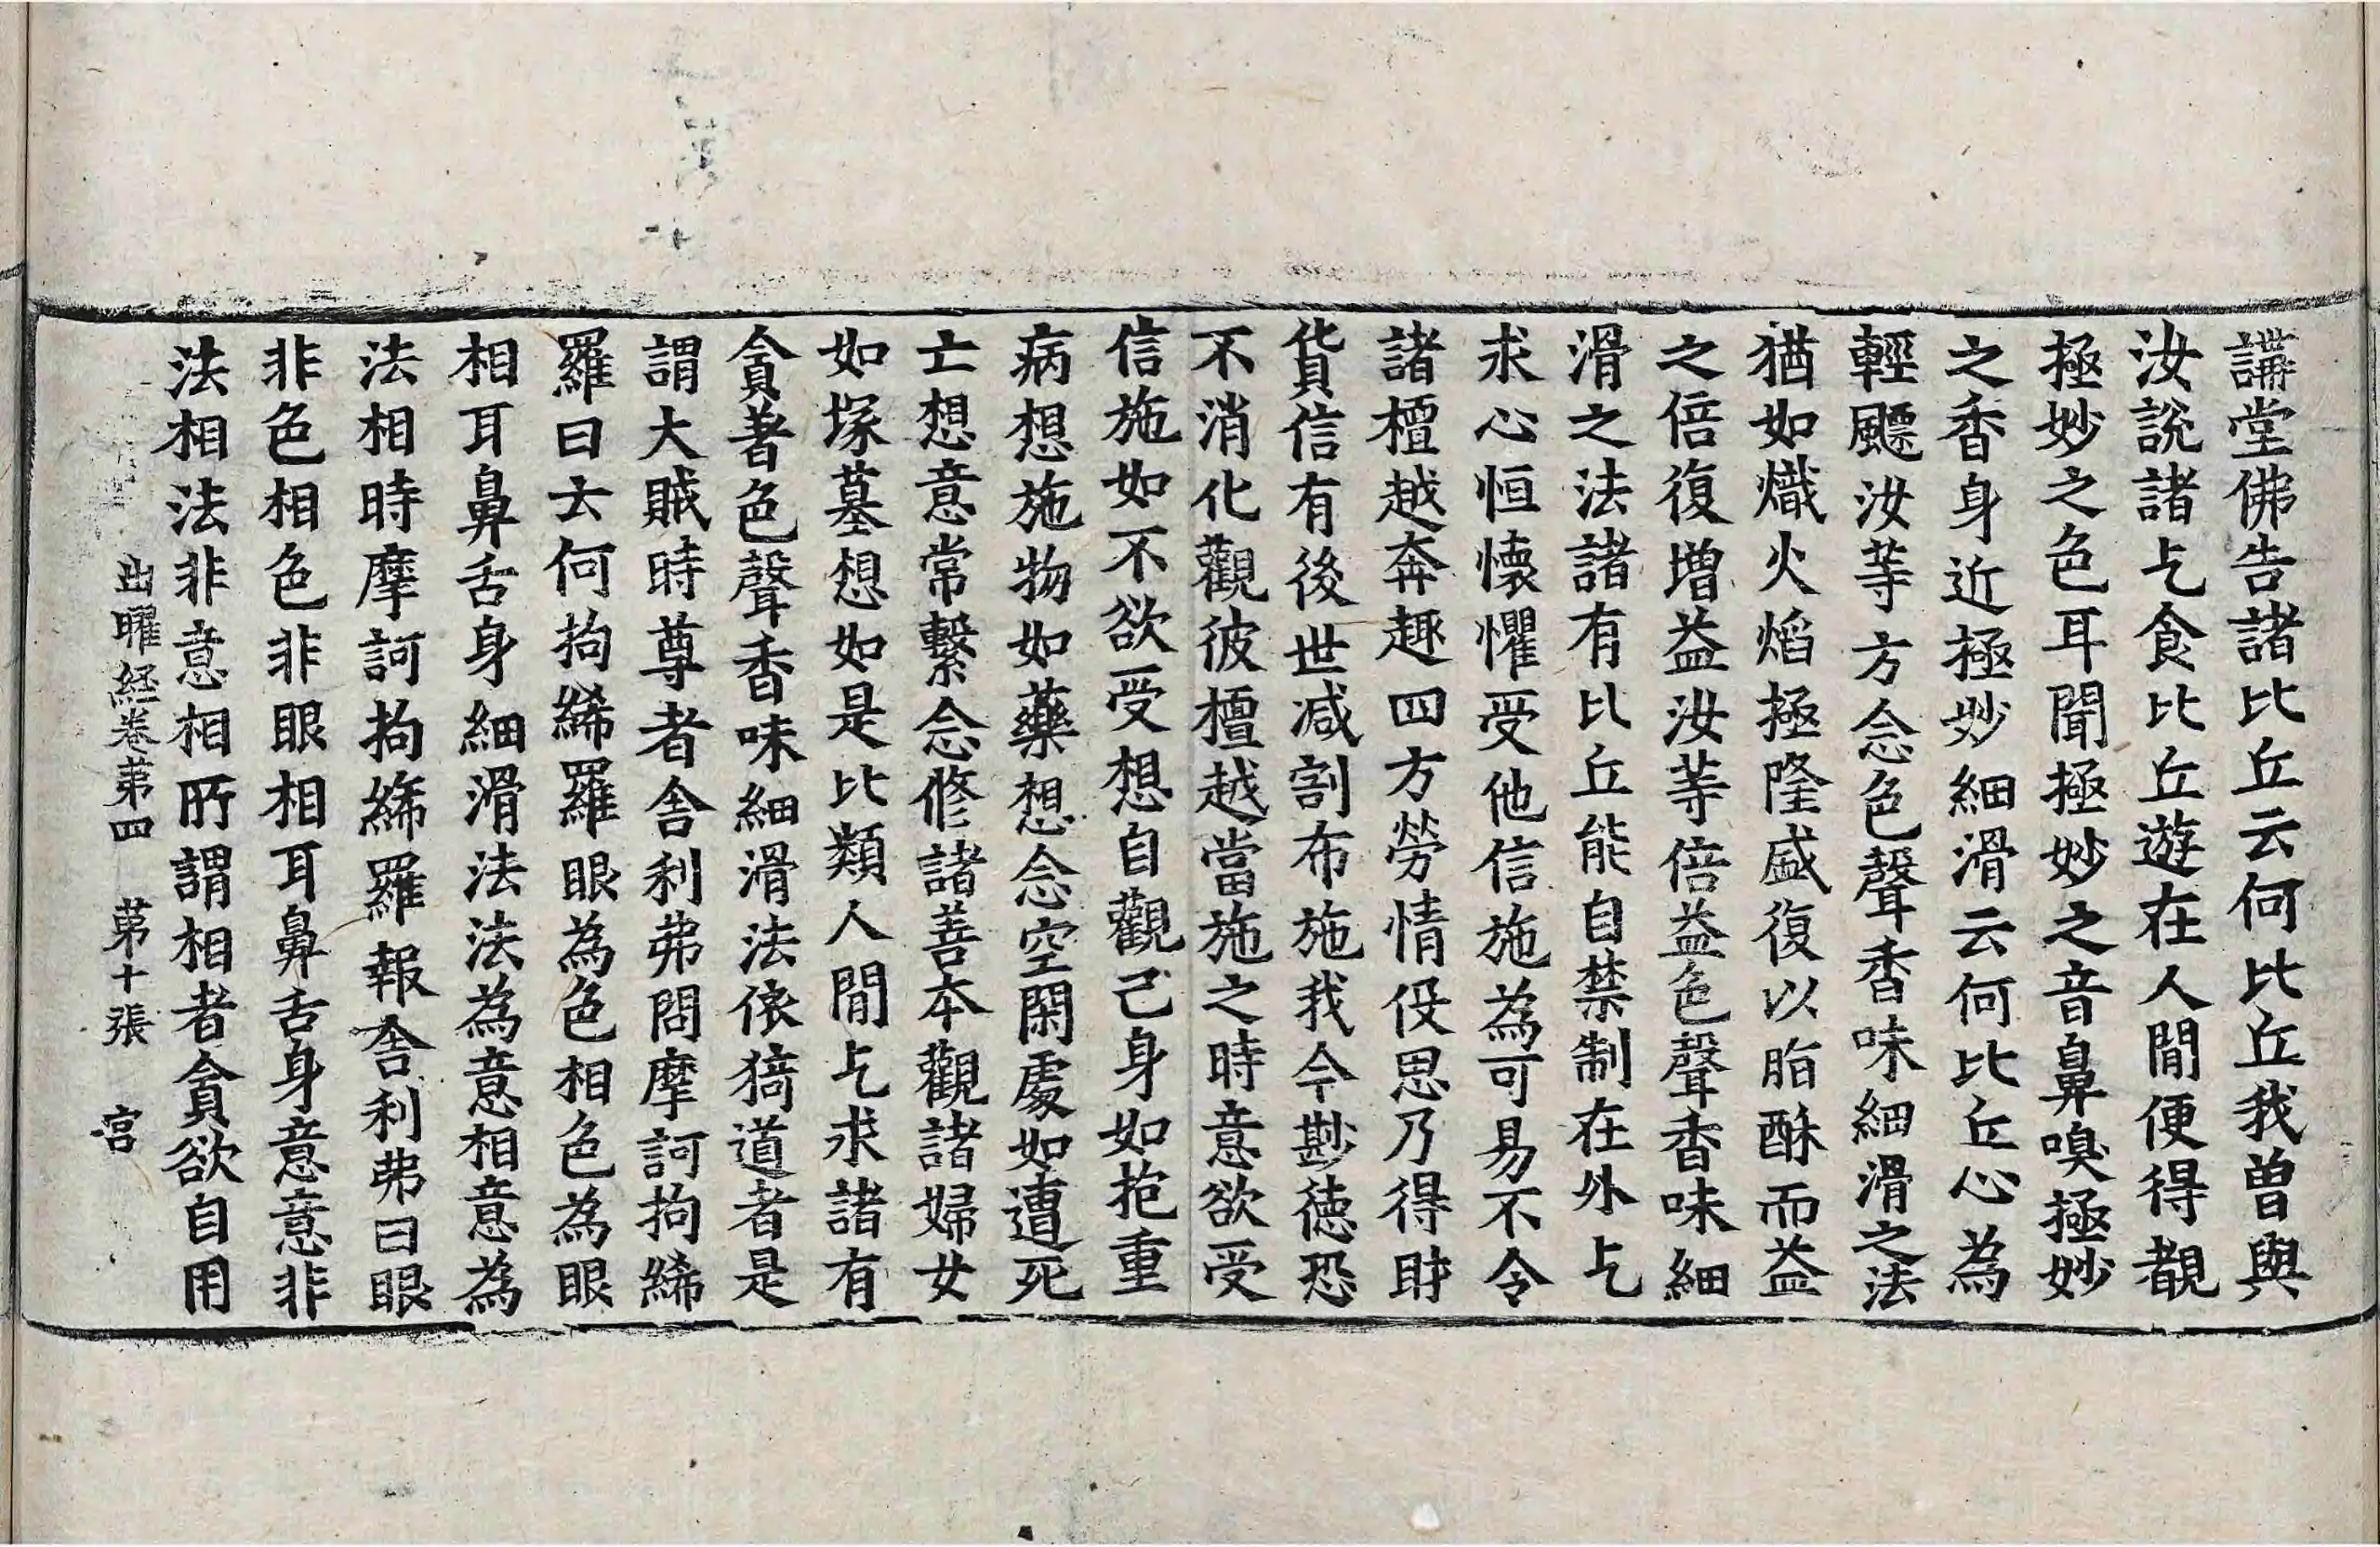 講堂佛告諸比丘云何比丘我曽與
汝說諸乞食比丘遊在人間便得覩
極妙之色耳聞極妙之音鼻嗅極妙
之香身近極妙細滑云何比丘心為
輕飄汝等方念色聲香味細滑之法
猶如熾火焰極隆盛復以脂酥而益
之倍復增益汝等倍益色聲香味細
滑之法諸有比丘能自禁制在外乞
求心恒懷懼受他信施為可易不令
諸檀越奔趣四方勞情役思乃得財
貨信有後世減割布施我今尠德恐
不消化觀彼檀越當施之時意欲受
信施如不欲受想自觀己身如抱重
病想施物如藥想念空閑處如遭死
亡想意常繫念修諸善本觀諸婦女
如塚墓想如是比類人間乞求諸有
貪著色聲香味細滑法依猗道者是
謂大賊時尊者舍利弗問摩訶拘絺
羅曰云何拘絺羅眼為色相色為眼
相耳鼻舌身細滑法法為意相意為
法相時摩訶拘絺羅報舍利弗曰眼
非色相色非眼相耳鼻舌身意意非
法相法非意相所謂相者貪欲自用
出曜経卷苐四　苐十張　宫